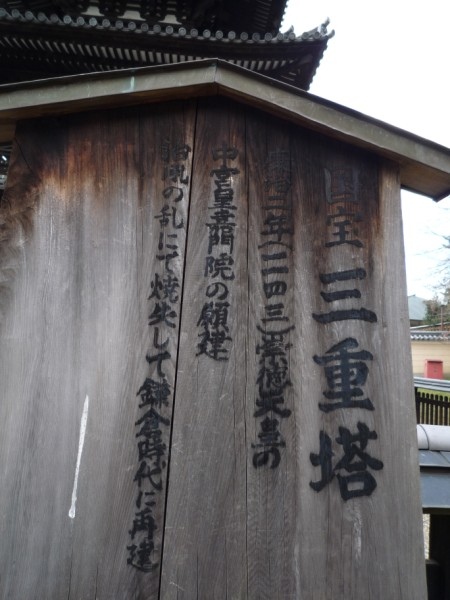 国宝 三重塔
康治二年(一一四三)崇徳天皇の
中宮皇嘉門院の願建
治承の乱にて焼失して鎌倉時代に再建